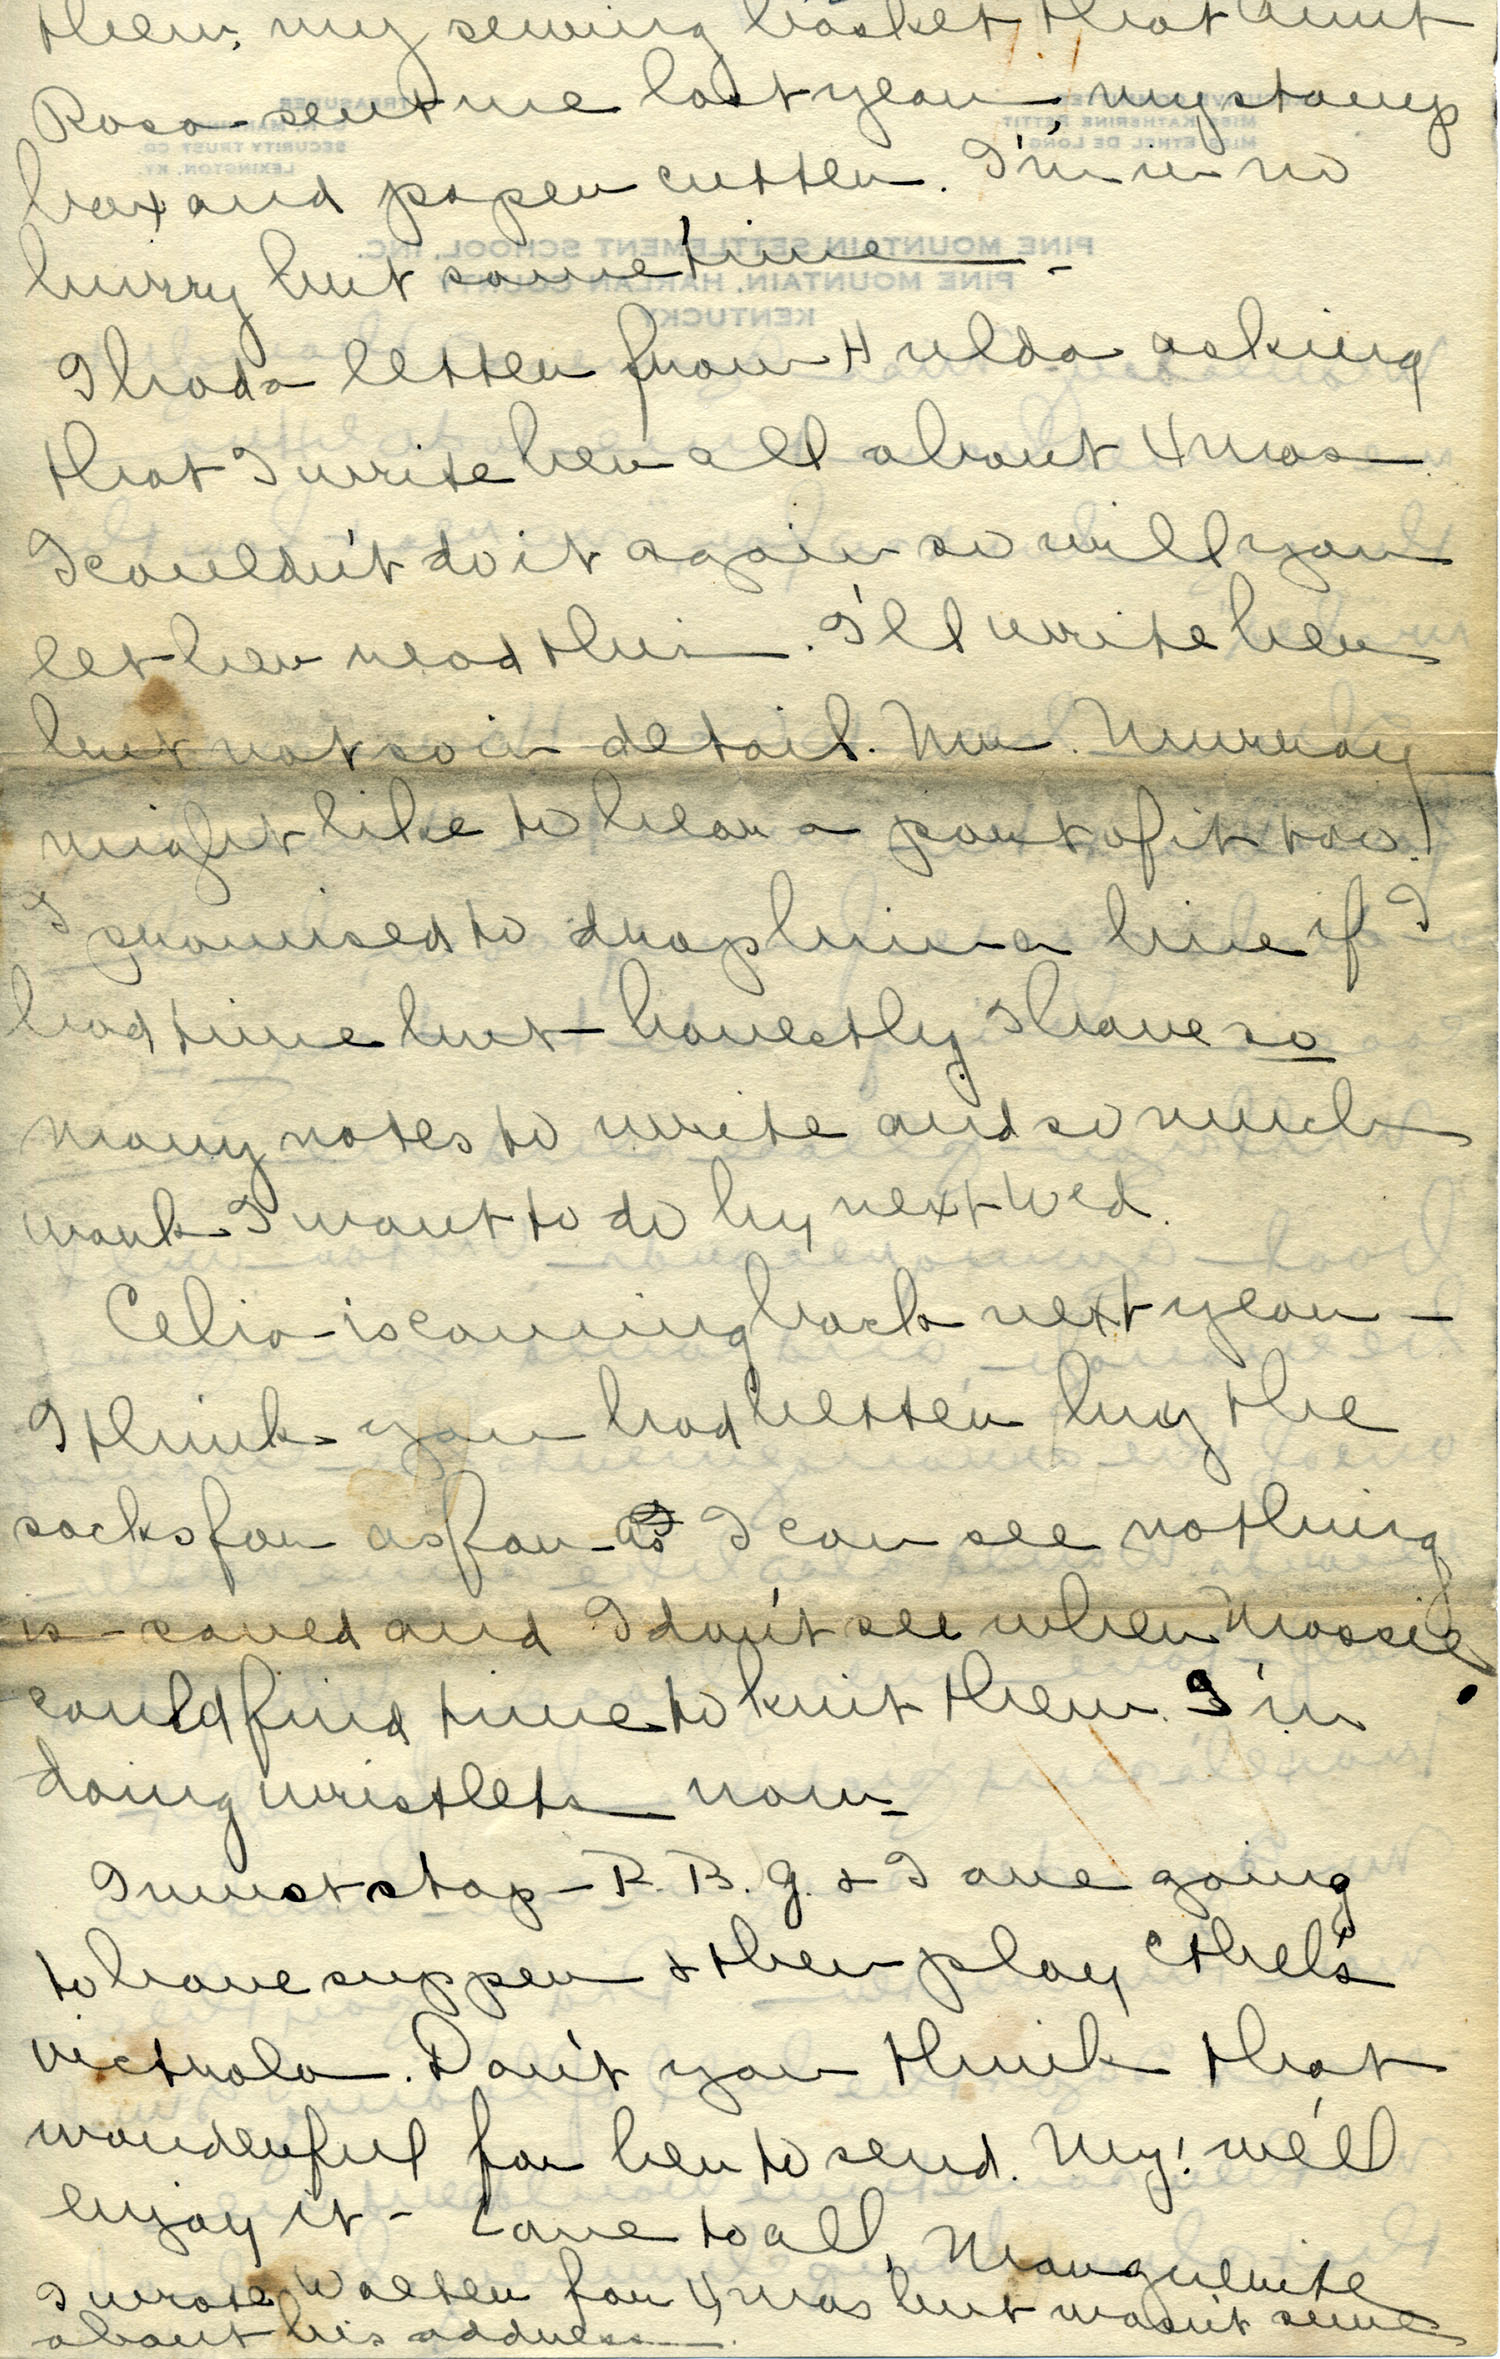 them, my sewing basket that Aunt
Rosa sent me last year, my stamp
box and paper cutter. I'm in no
hurry but sometime -
I had a letter from Hulda asking
that I write her all about Xmas
I couldn't do it again so will you
let her read this. I'll write her
but not so in detail. Mr. Murray
might like to hear a part of it too.
I promised to drop him a line if I
had time but honestly I have so
many notes to write and so much
work I want to do by next Wed.
Celia is coming back next year -
I think you had better buy the
socks for as far as I can see nothing
is saved and I don't see when Massie
could find time to knit them. I'm
doing wristlets now -
I must stop - R. B. G. & I are going
to have supper & then play Ethel's
victrola. Don't you think that
wonderful for her to send. My! we'll
enjoy it - Love to all, Marguerite
I wrote Walter for Xmas but wasn't sure
about his address.
TREASURER
SECURITY TRUST CO.
LEXINGTON, KY.
MISS KATHERINE PETTIT
MISS ETHEL DE LONG
PINE MOUNTAIN SETTLEMENT SCHOOL, INC.
PINE MOUNTAIN, HARLAN COUNTY
KENTUCKY